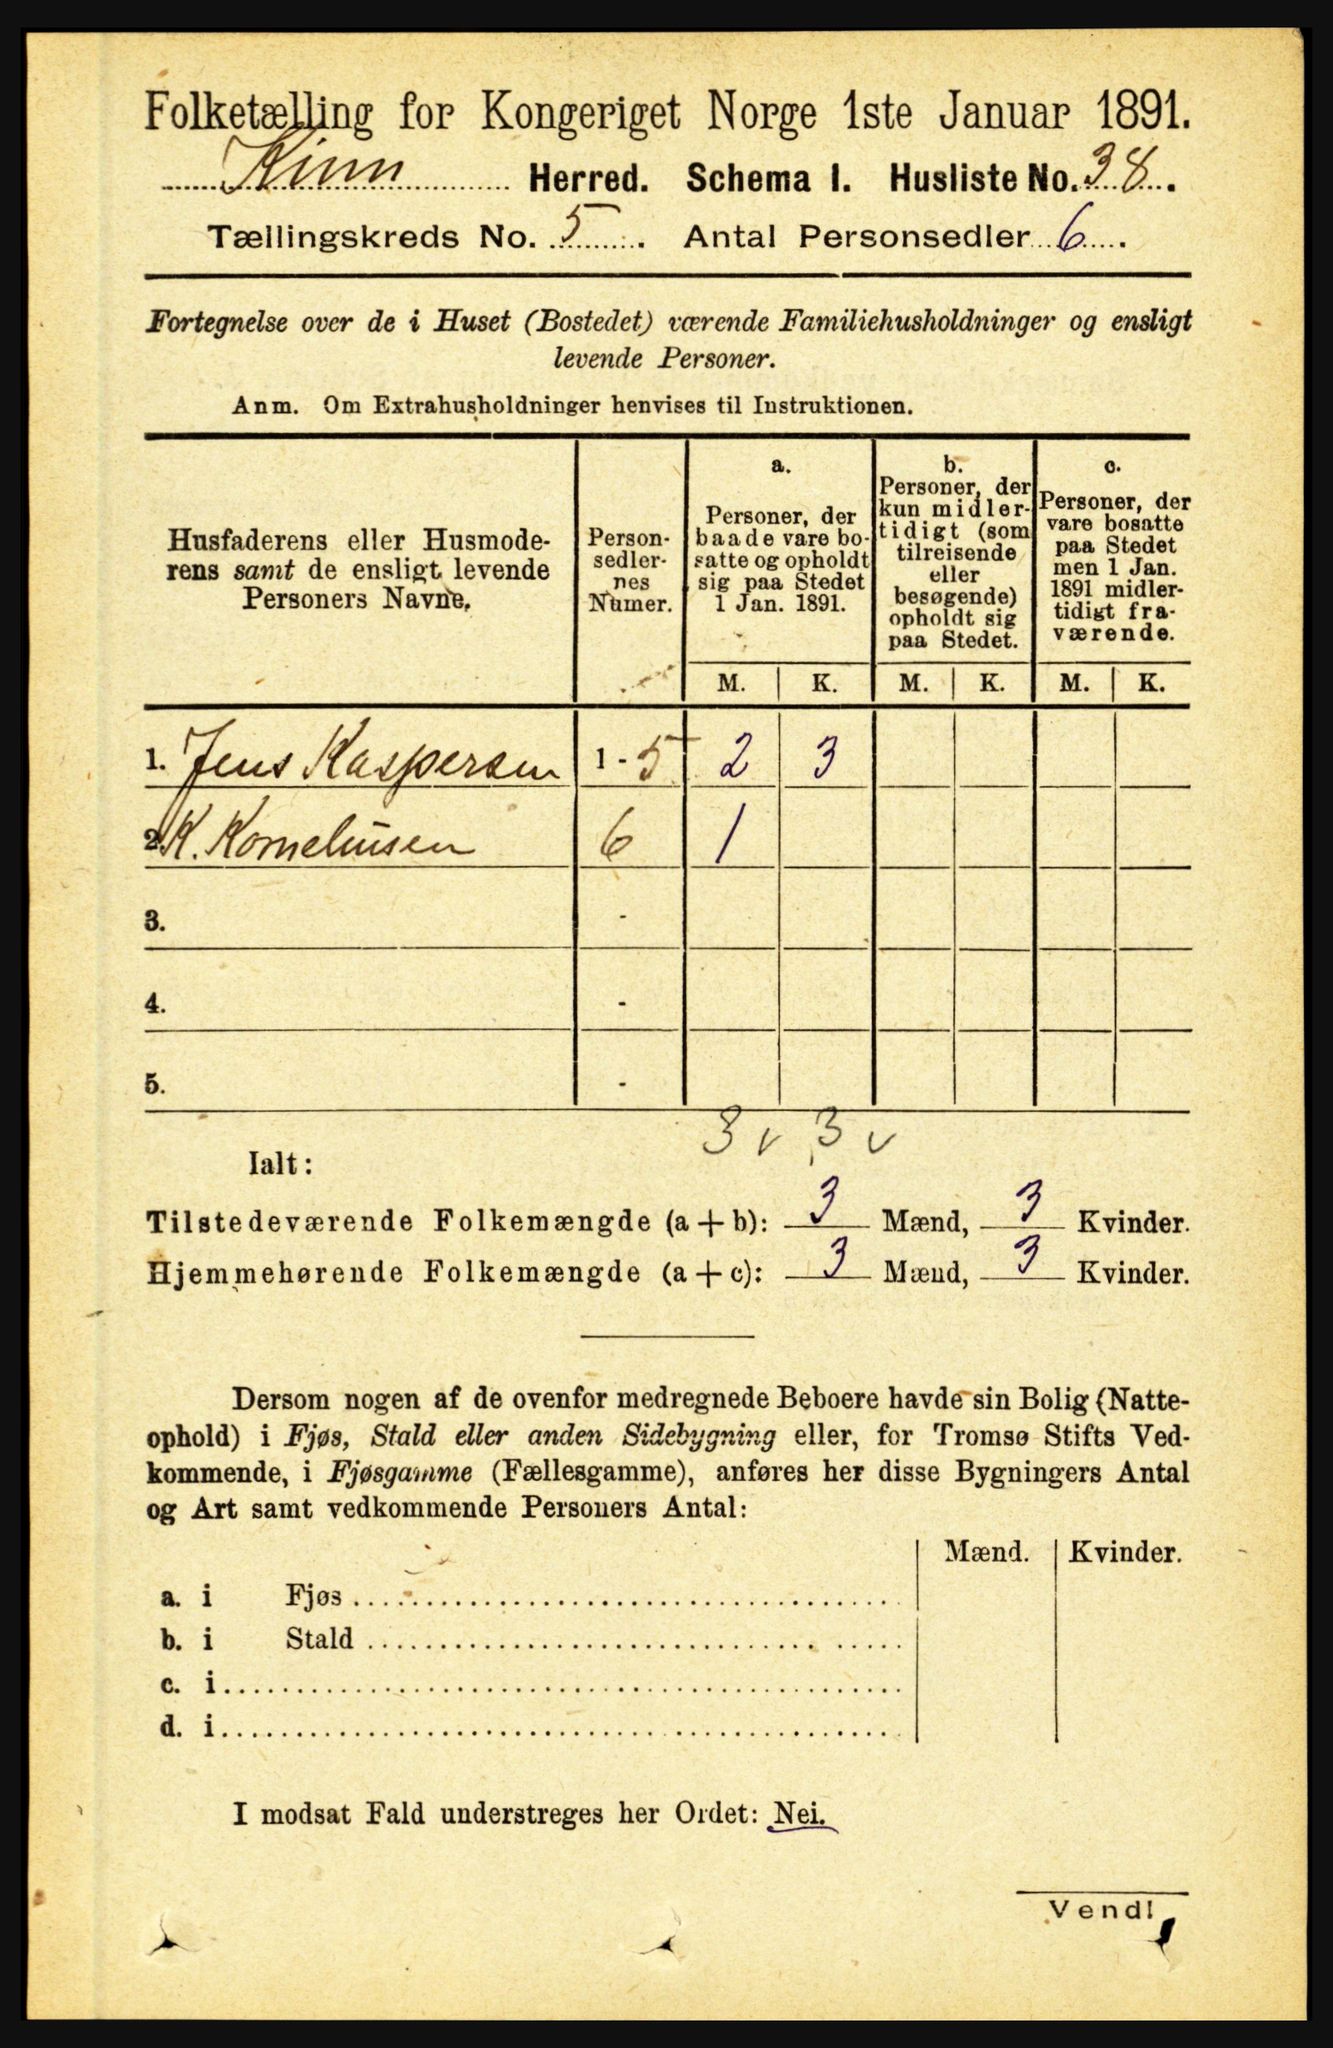 Folketælling for Kongeriget Norge 1ste Januar 1891.
Kinn Herred. Schema I. Husliste No. 38.
Tællingskreds No. 5. Antal Personsedler 6.
Fortegnelse over de i Huset (Bostedet) værende Familiehusholdninger og ensligt
levende Personer.
Anm. Om Extrahusholdninger henvises til Instruktionen.
Husfaderens eller Husmode-
rens samt de ensligt levende
Personers Navne.
Person-
sedler-
nes
Numer.
a.
Personer, der
baade vare bo-
satte og opholdt
sig paa Stedet
1 Jan. 1891.
b.
Personer, der
kun midler-
tidigt (som
tilreisende
eller
besøgende)
opholdt sig
paa Stedet.
c.
Personer, der
vare bosatte
paa Stedet
men 1 Jan.
1891 midler-
tidigt fra-
værende.
M. K. M. K. M. K.
1. Jens Kaspersen 1 - 5 2 3
2. K. Korneliusen 6 1
3. -
4. -
5. -
3 v 3 v
Ialt:
Tilstedeværende Folkemængde (a + b): 3 Mænd, 3 Kvinder.
Hjemmehørende Folkemængde (a + c): 3 Mænd, 3 Kvinder.
Dersom nogen af de ovenfor medregnede Beboere havde sin Bolig (Natte-
ophold) i Fjøs, Stald eller anden Sidebygning eller, for Tromsø Stifts Ved-
kommende, i Fjøsgamme (Fællesgamme), anføres her disse Bygningers Antal
og Art samt vedkommende Personers Antal:
Mænd. Kvinder.
a. i Fjøs
b. i Stald
c. i
d. i
I modsat Fald understreges her Ordet: Nei.
Vend!